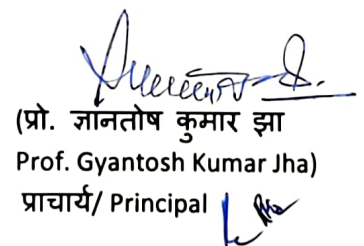 (प्रो. ज्ञानतोष कुमार झा
Prof. Gyantosh Kumar Jha)
प्राचार्य/ Principal